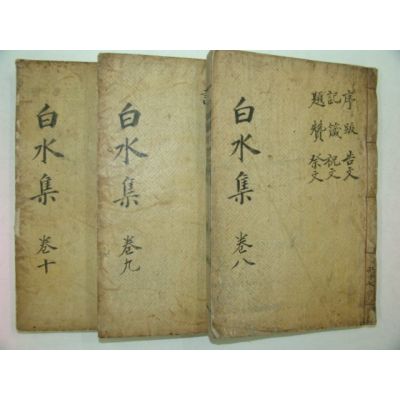 白水集 卷十
白水集 卷九
白水集 卷八
序跋 告文
記箴 祝文
題贊 祭文